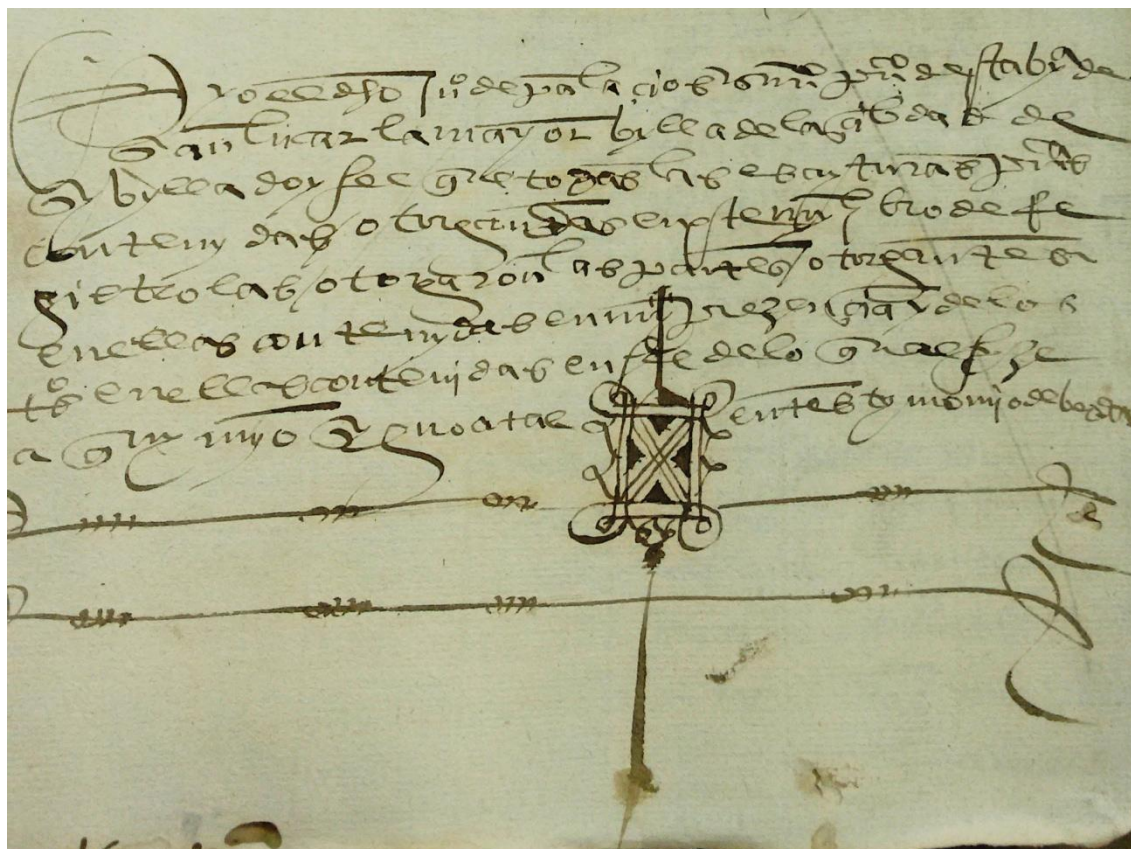 E yo el dho Juº de palaçios srnº puº desta bª de
san lucar la mayor bylla de la çibdad de
sybylla doy fee que todas las escryturas puªs
contenydas otorgadas en este my libro de re
gistro las otorgaron las partes otorgantes
en ellas contenydas en my prezençia y de los
tºs en ellas contenidas en fee de lo qual fize
aquy myo syno atal en testymonyo de berdad